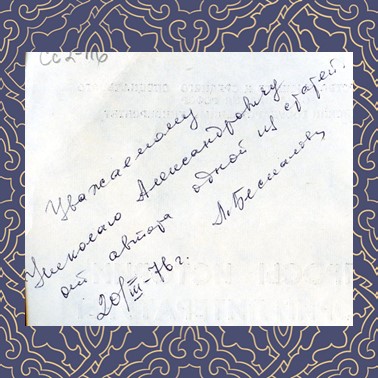 Сс2-116
Уважаемому
Николаю Александровичу
от автора одной из статей.
Л. Беспалова
20/III-76 г.